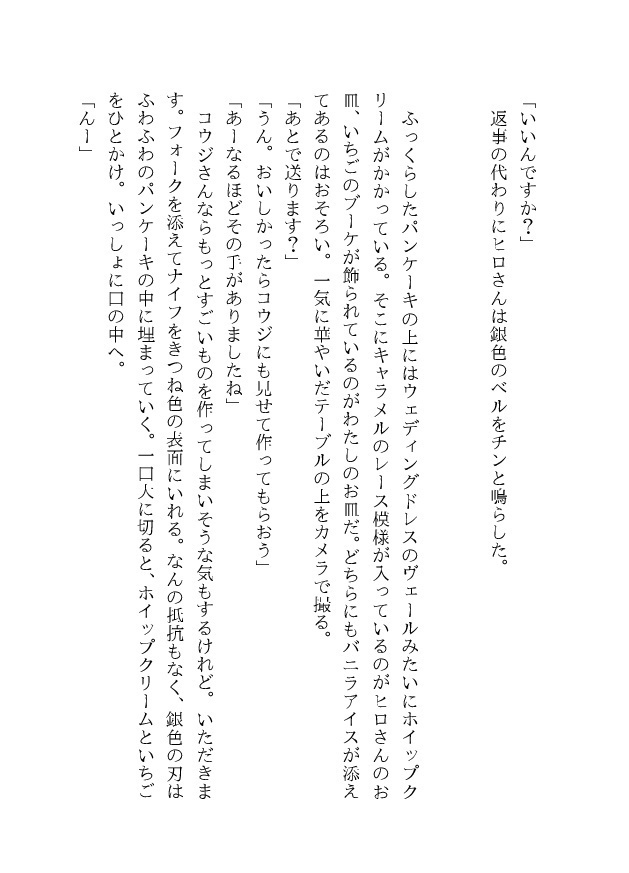 「いいんですか？」
返事の代わりにヒロさんは銀色のベルをチンと鳴らした。
ふっくらしたパンケーキの上にはウェディングドレスのヴェールみたいにホイップク
リームがかかっている。そこにキャラメルのレース模様が入っているのがヒロさんのお
皿、いちごのブーケが飾られているのがわたしのお皿だ。どちらにもバニラアイスが添え
てあるのはおそろい。一気に華やいだテーブルの上をカメラで撮る。
「あとで送ります？」
「うん。おいしかったらコウジにも見せて作ってもらおう」
「あーなるほどその手がありましたね」
コウジさんならもっとすごいものを作ってしまいそうな気もするけれど。いただきま
す。フォークを添えてナイフをきつね色の表面にいれる。なんの抵抗もなく、銀色の刃は
ふわふわのパンケーキの中に埋まっていく。一口大に切ると、ホイップクリームといちご
をひとかけ。いっしょに口の中へ。
「んー」